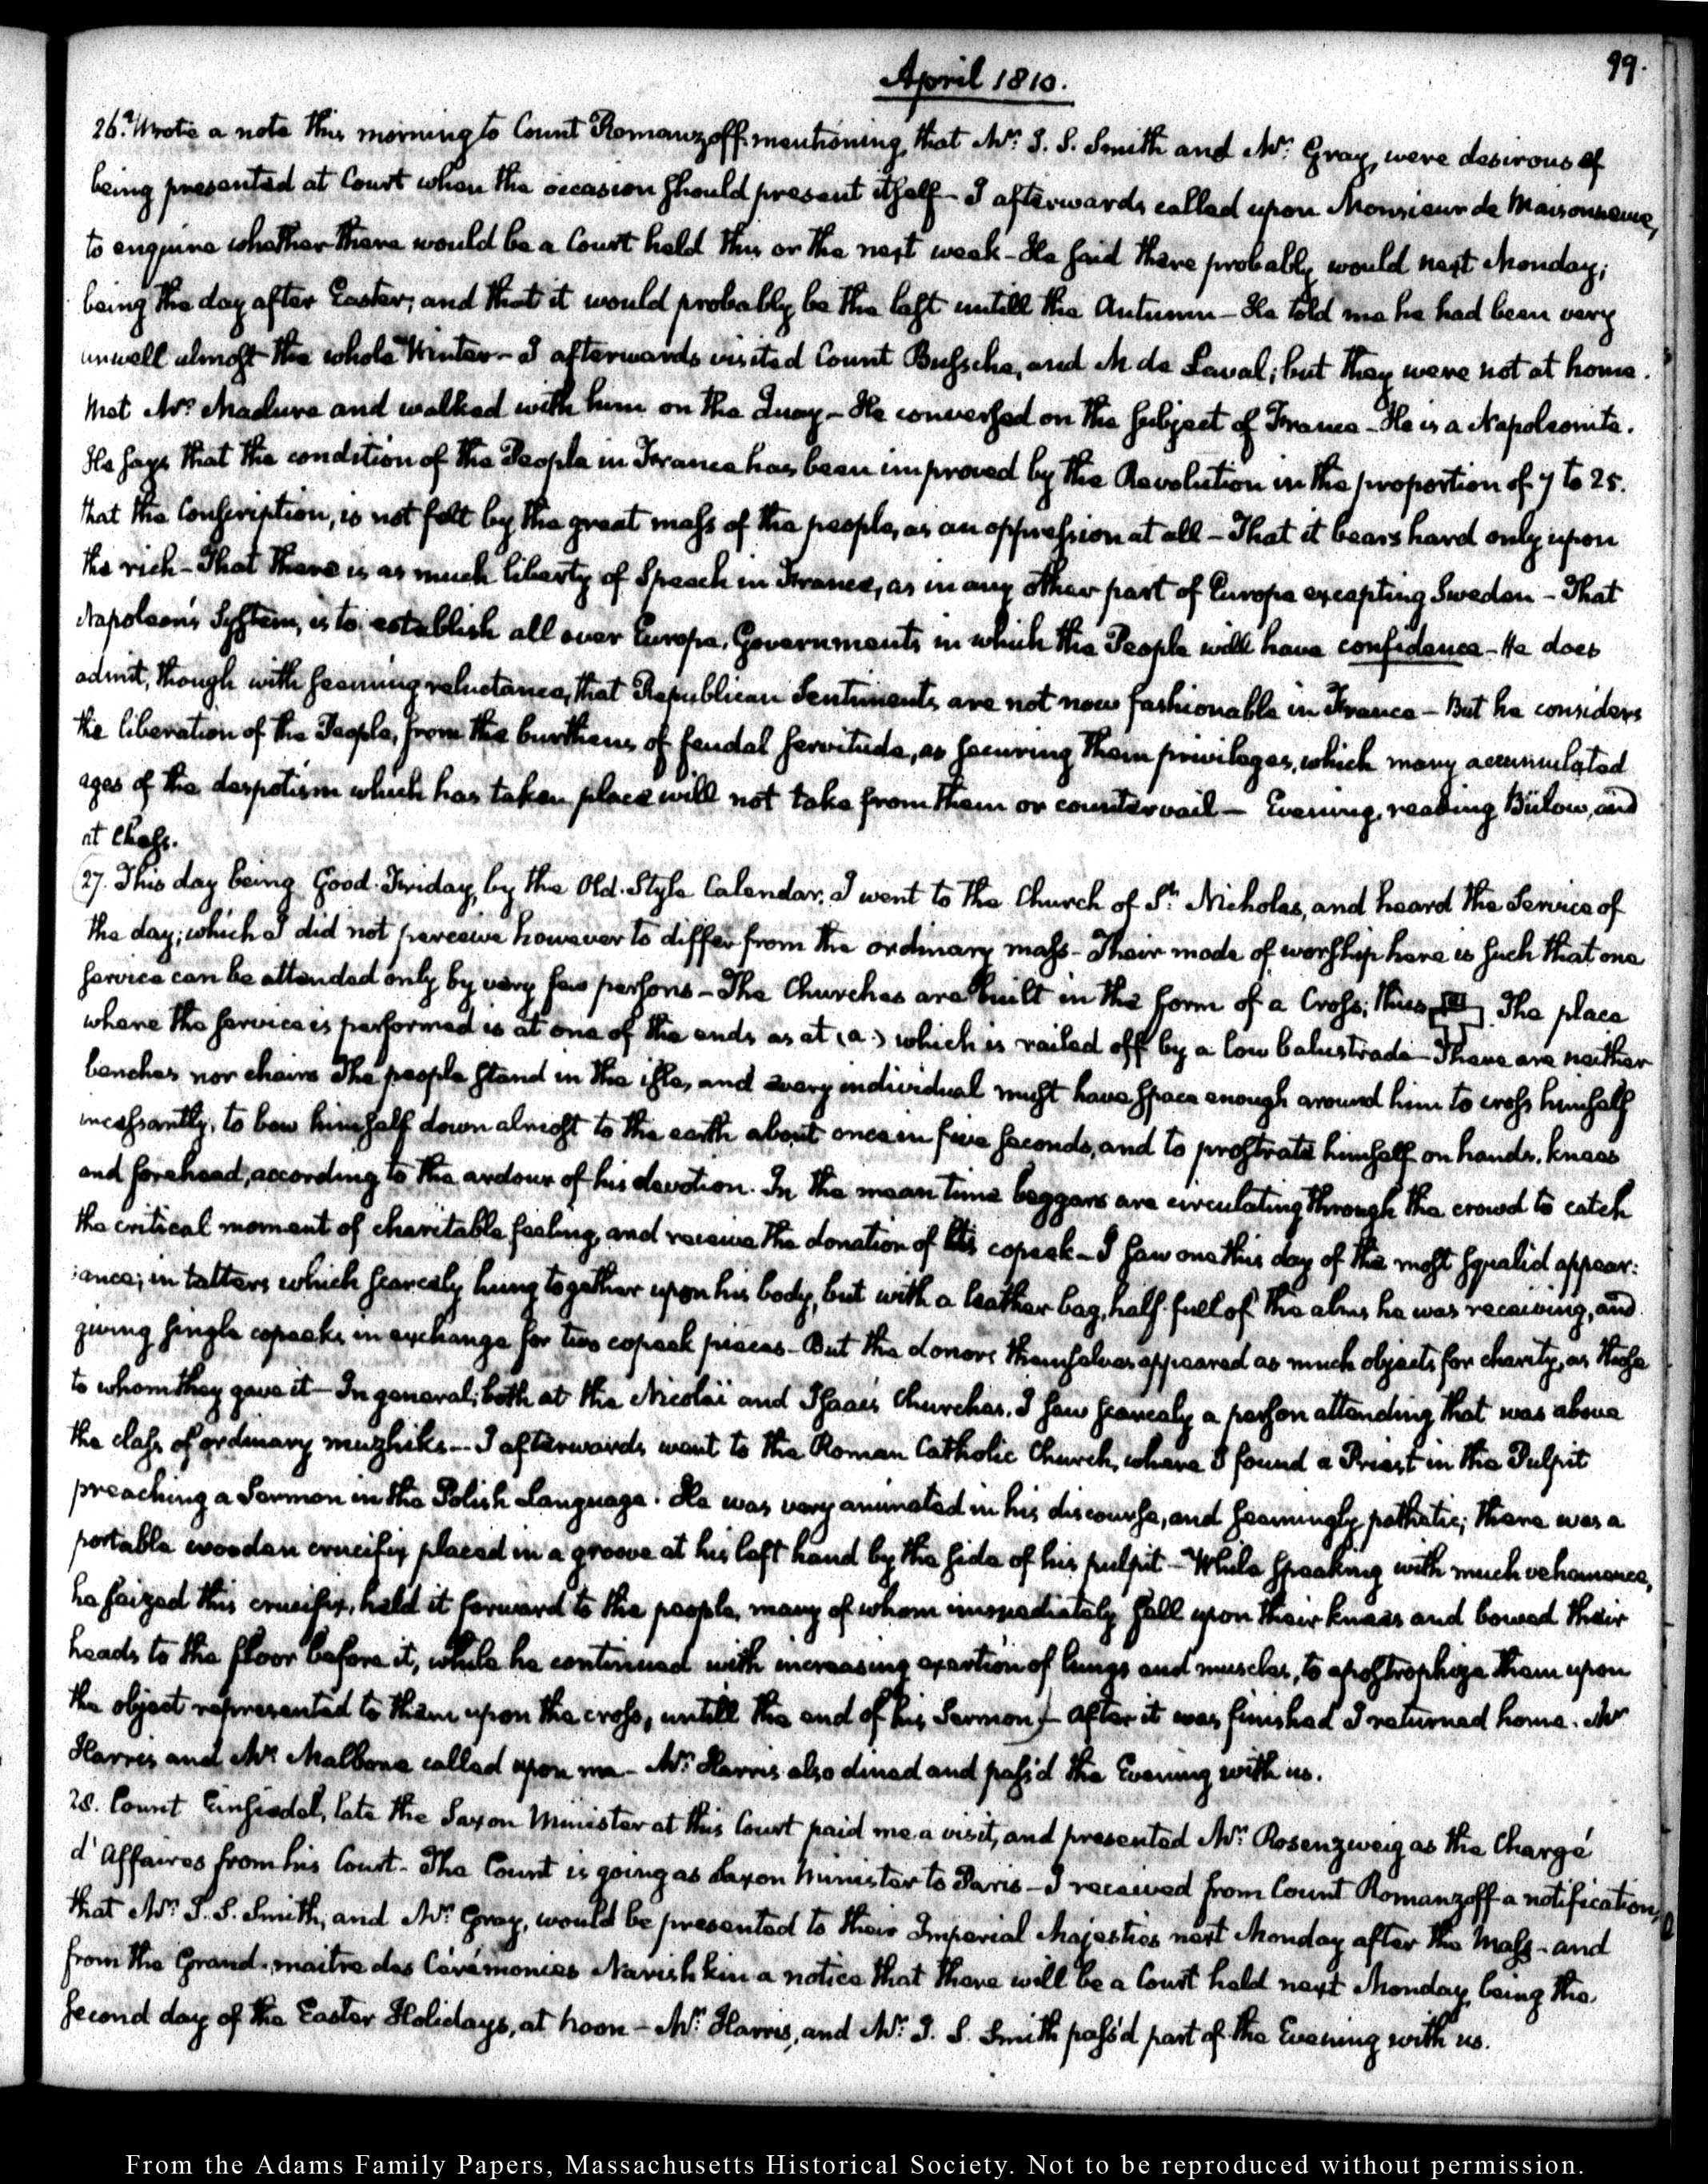 99.
April 1810.
26. Wrote a note this morning to Count Romanzoff mentioning, that Mr. J. S. Smith and Mr. Gray, were desirous of
being presented at Court when the occasion should present itself - I afterwards called upon Monsieur de Maisonneuve,
to enquire whether there would be a Court held this or the next week - He said there probably would next Monday;
being the day after Easter; and that it would probably be the last untill the Autumn - He told me he had been very
unwell almost the whole Winter - I afterwards visited Count Bussche, and M. de Laval; but they were not at home.
Met Mr. Maclure and walked with him on the Quay - He conversed on the subject of France - He is a Napoleonite.
He says that the condition of the People in France has been improved by the Revolution in the proportion of 7 to 25.
that the Conscription, is not felt by the great mass of the people, as an oppression at all - That it bears hard only upon
the rich - That there is as much liberty of Speech in France, as in any other part of Europe excepting Sweden - That
Napoleon's System, is to establish all over Europe, Governments in which the People will have confidence - He does
admit, though with seeming reluctance, that Republican Sentiments are not now fashionable in France - But he considers
the liberation of the People, from the burthens of feudal servitude, as securing them privileges, which many accumulated
ages of the despotism which has taken place will not take from them or countervail - Evening, reading Bülow, and
at Chess.
27. This day being Good-Friday, by the Old-Style Calendar, I went to the Church of St. Nicholas, and heard the Service of
the day; which I did not perceive however to differ from the ordinary mass - Their mode of worship here is such that one
service can be attended only by very few persons - The Churches are built in the form of a Cross; thus a The place
where the service is performed is at one of the ends as at (a.) which is railed off by a low balustrade - There are neither
benches nor chairs The people stand in the isle, and every individual must have space enough around him to cross himself
incessantly, to bow himself down almost to the earth about once in five seconds, and to prostrate himself on hands, knees
and forehead, according to the ardour of his devotion. In the mean time beggars are circulating through the crowd to catch
the critical moment of charitable feeling, and receive the donation of copeck - I saw one this day of the most squalid appear:
:ance; in tatters which scarcely hung together upon his body, but with a leather bag, half full of the alms he was receiving, and
giving single copecks in exchange for two copeck pieces - But the donors themselves appeared as much objects for charity, as those
to whom they gave it - In general, both at the Nicolaï and Isaac's Churches. I saw scarcely a person attending that was above
the class of ordinary muzhiks - I afterwards went to the Roman Catholic Church, where I found a Priest in the Pulpit
preaching a Sermon in the Polish Language. He was very animated in his discourse, and seemingly pathetic; there was a
portable wooden crucifix placed in a groove at his left hand by the side of his pulpit - While speaking with much vehemence,
he seized this crucifix, held it forward to the people, many of whom immediately fell upon their knees and bowed their
heads to the floor before it, while he continued with increasing exertion of lungs and muscles, to apostrophize them upon
the object represented to them upon the cross, untill the end of his Sermon - After it was finished I returned home. Mr
Harris and Mr. Malbone called upon me - Mr. Harris also dined and pass'd the Evening with us.
28. Count Einsiedel, late the Saxon Minister at this Court paid me a visit, and presented Mr. Rosenzweig as the Chargé
d'Affaires from his Court - The Count is going as Saxon Minister to Paris - I received from Count Romanzoff a notification,
that Mr. J. S. Smith, and Mr. Gray, would be presented to their Imperial Majesties next Monday after the Mass - and
from the Grand-maitre des Cérémonies Narishkin a notice that there will be a Court held next Monday, being the
second day of the Easter Holidays, at noon - Mr. Harris, and Mr. J. S. Smith pass'd part of the Evening with us.
From the Adams Family Papers, Massachusetts Historical Society. Not to be reproduced without permission.